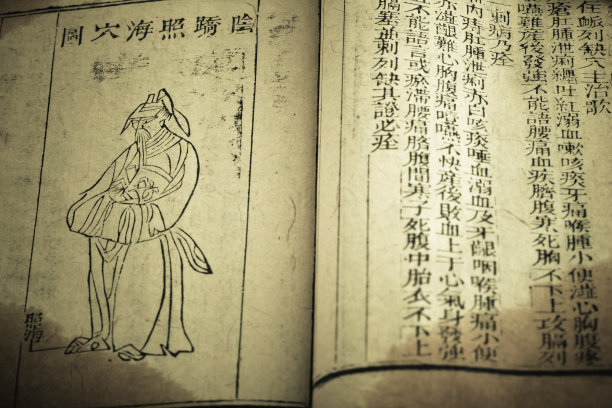 陰蹻照海穴圖
照海
列缺穴主治歌
肛腫泄痢纏吐紅溺血嗽咳痰牙痛喉腫小便澁心胸腹疼
噎嚥難產後發強不能語腰痛血疾臍腹寒死胎不下上攻膈列
刺病乃痊
內痔肛腫泄痢赤白咳痰唾血溺血及牙齦咽喉腫痛小便
赤澁艱難心胸腹痛噎嚥不快產後敗血上干心氣身發強
不能語言或瘀滯腰痛臍腹間寒子死腹中胎衣不下上
膈塞並刺列缺其證必痊